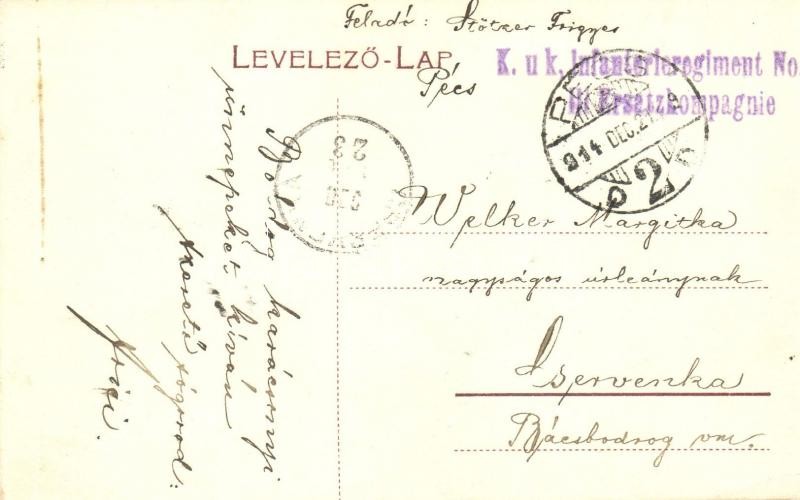 Feladó: Stötzer Frigyes
LEVELEZŐ-LAP
Pécs
K. u k. Infanterieregiment No.
Ersatzkompagnie
PÉCS
914 DEC. 21
2
23
DEC
Boldog karácsonyi
ünnepeket kíván
szerető sógorod:
Frici.
Welker Margitka
nagyságos úrleánynak
Cservenka
Bácsbodrog vm.